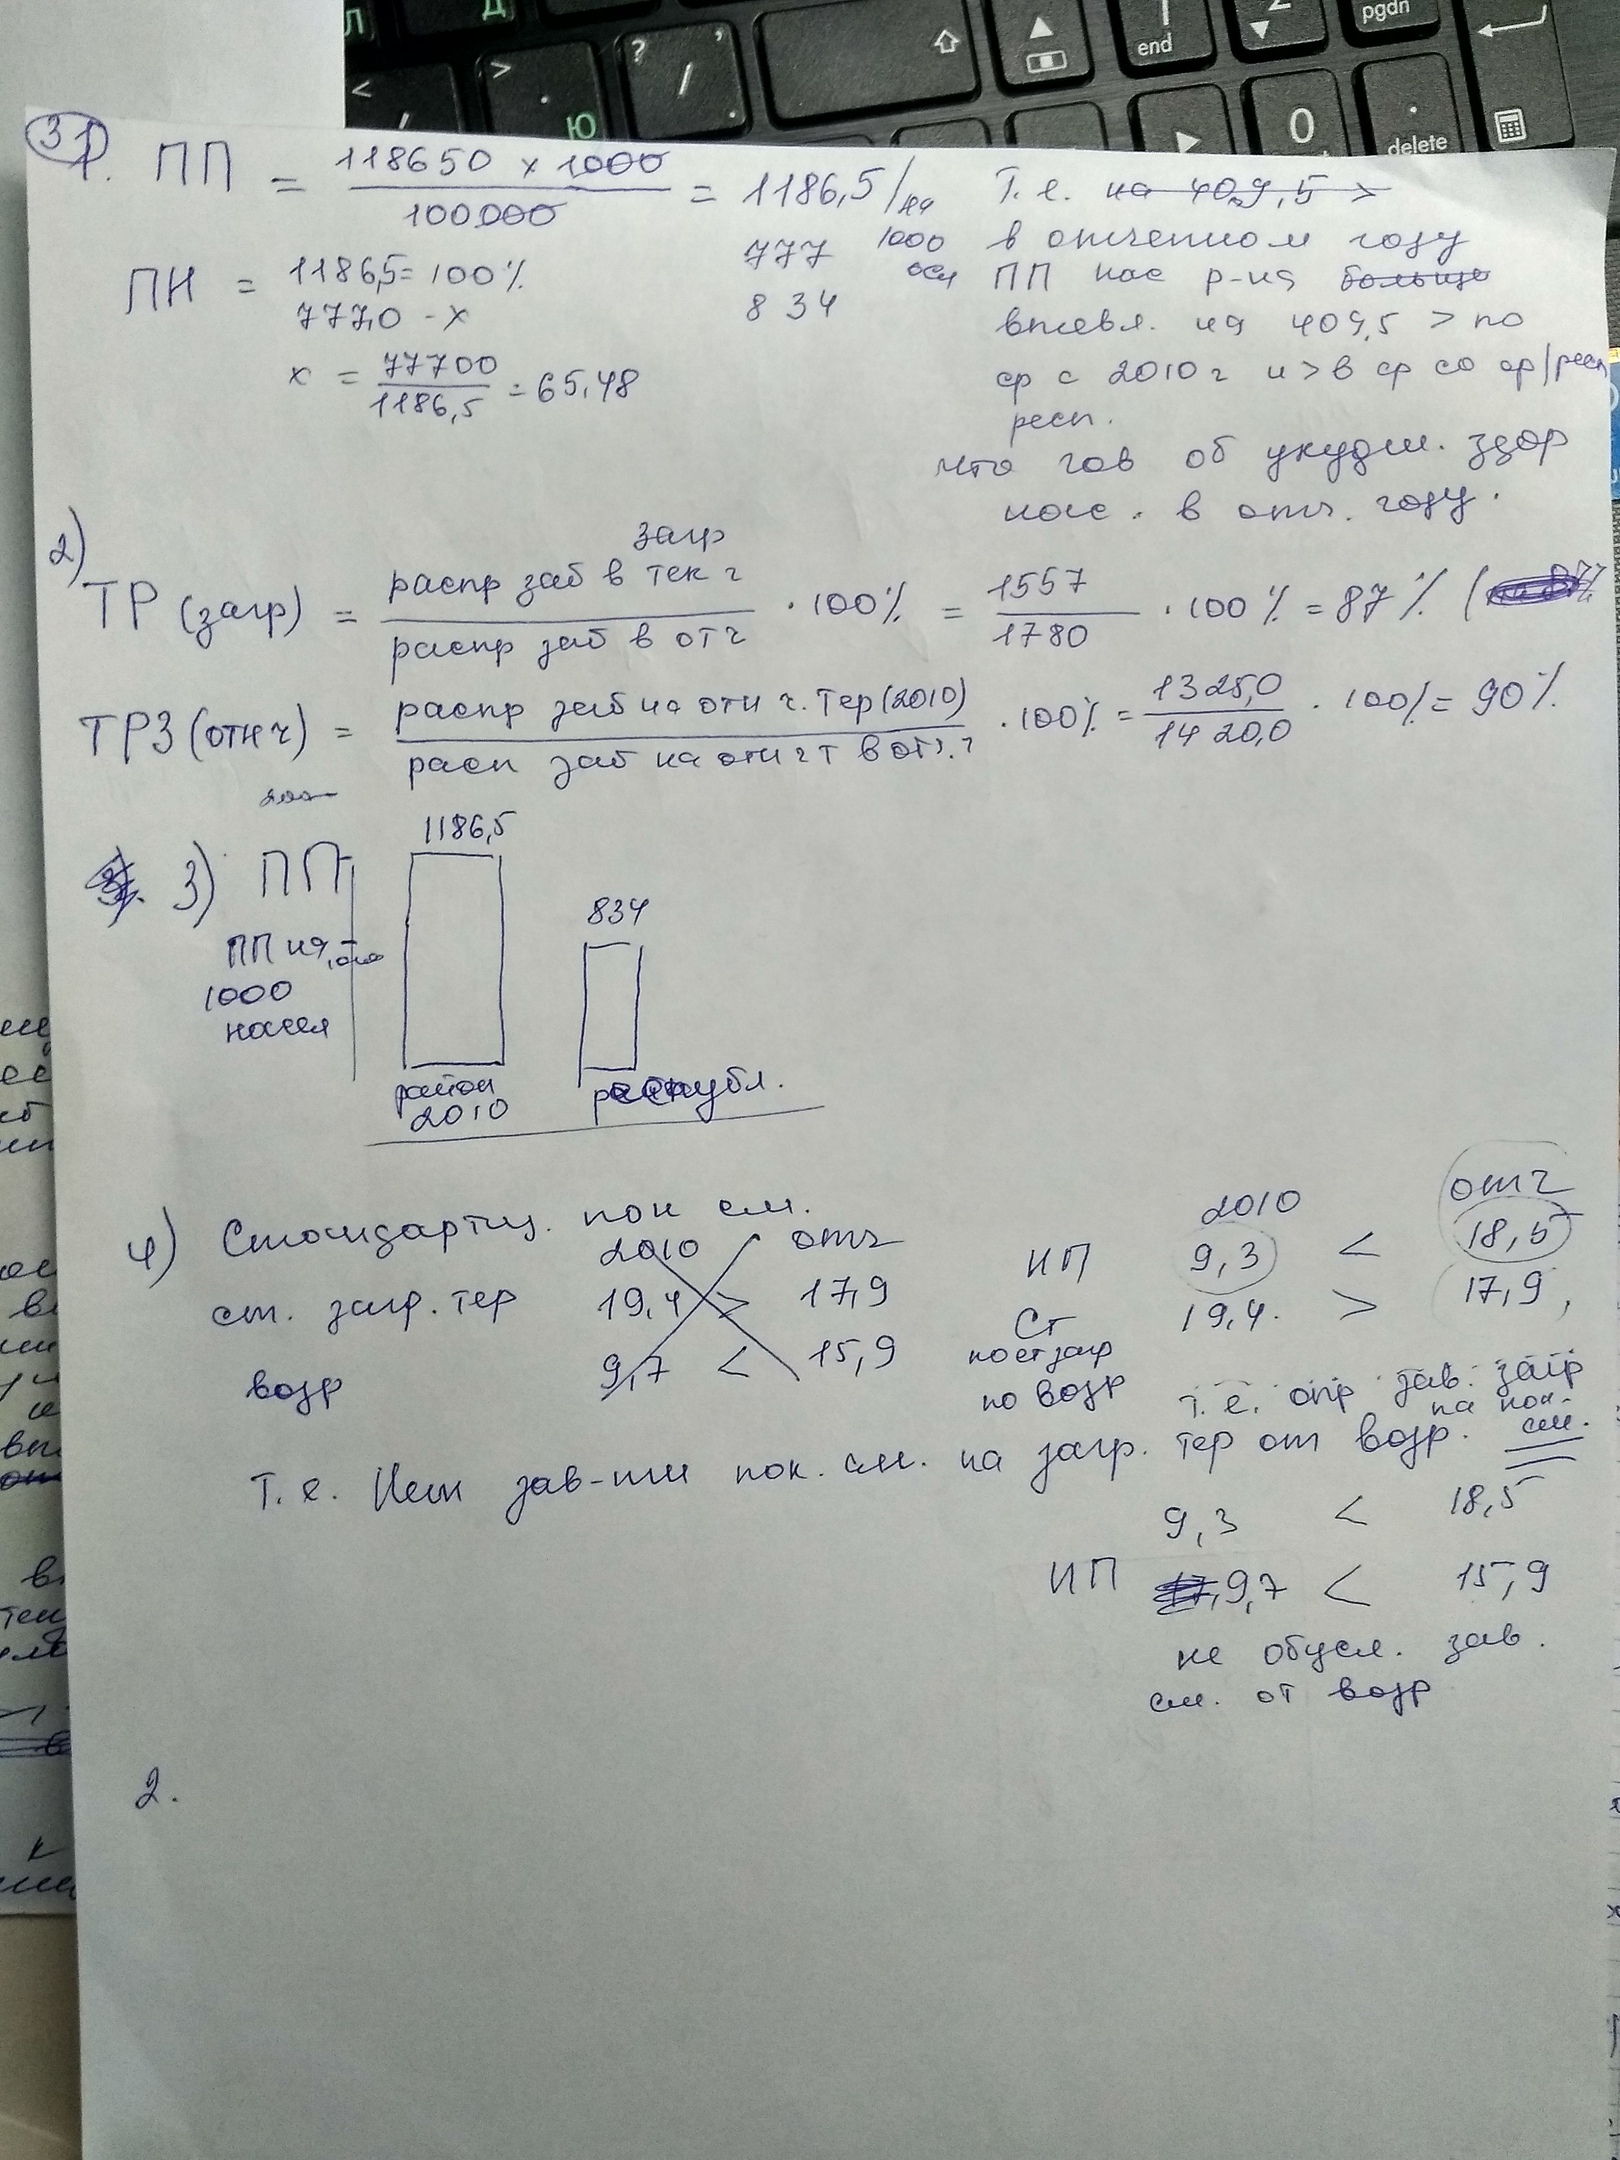 31. ПП = 118650 х 1000 / 100000 = 1186,5/на 1000
Т.е. на 409,5 >
777
834
в отчетном году
ПП нас р-на больше
впервл. на 409,5 > по
ср с 2010 г и > в ср со ср/респ
респ.
что гов об ухудш. здор
нас. в отч. году.
ПН = 1186,5 = 100%
777,0 - х
х = 77700 / 1186,5 = 65,48
2)
загр
ТР (загр) = распр заб в тек г / распр заб в от г · 100% = 1557 / 1780 · 100% = 87% (
ТРЗ (отн ч) = распр заб на отн ч. тер (2010) / расп заб на отн ч т в от. г · 100% = 1325,0 / 1420,0 · 100% = 90%
3) ПП
1186,5
834
ПП на
1000
насел
район
2010
республ.
4) Стандартиз. пок см.
2010 отч
см. загр. тер 19,4 > 17,9
возр 9,7 < 15,9
2010 отч
ИП 9,3 < 18,5
Ст 19,4. > 17,9,
пост загр
по возр
т. е. опр зав. загр
на пок.
см.
Т. е. Нет зав-ти пок. см. на загр. тер от возр.
9,3 < 18,5
ИП 9,7 < 15,9
не обусл. зав.
см. от возр
2.
end
pgdn
0
delete
Ю
Д
Л
?
/
>
<